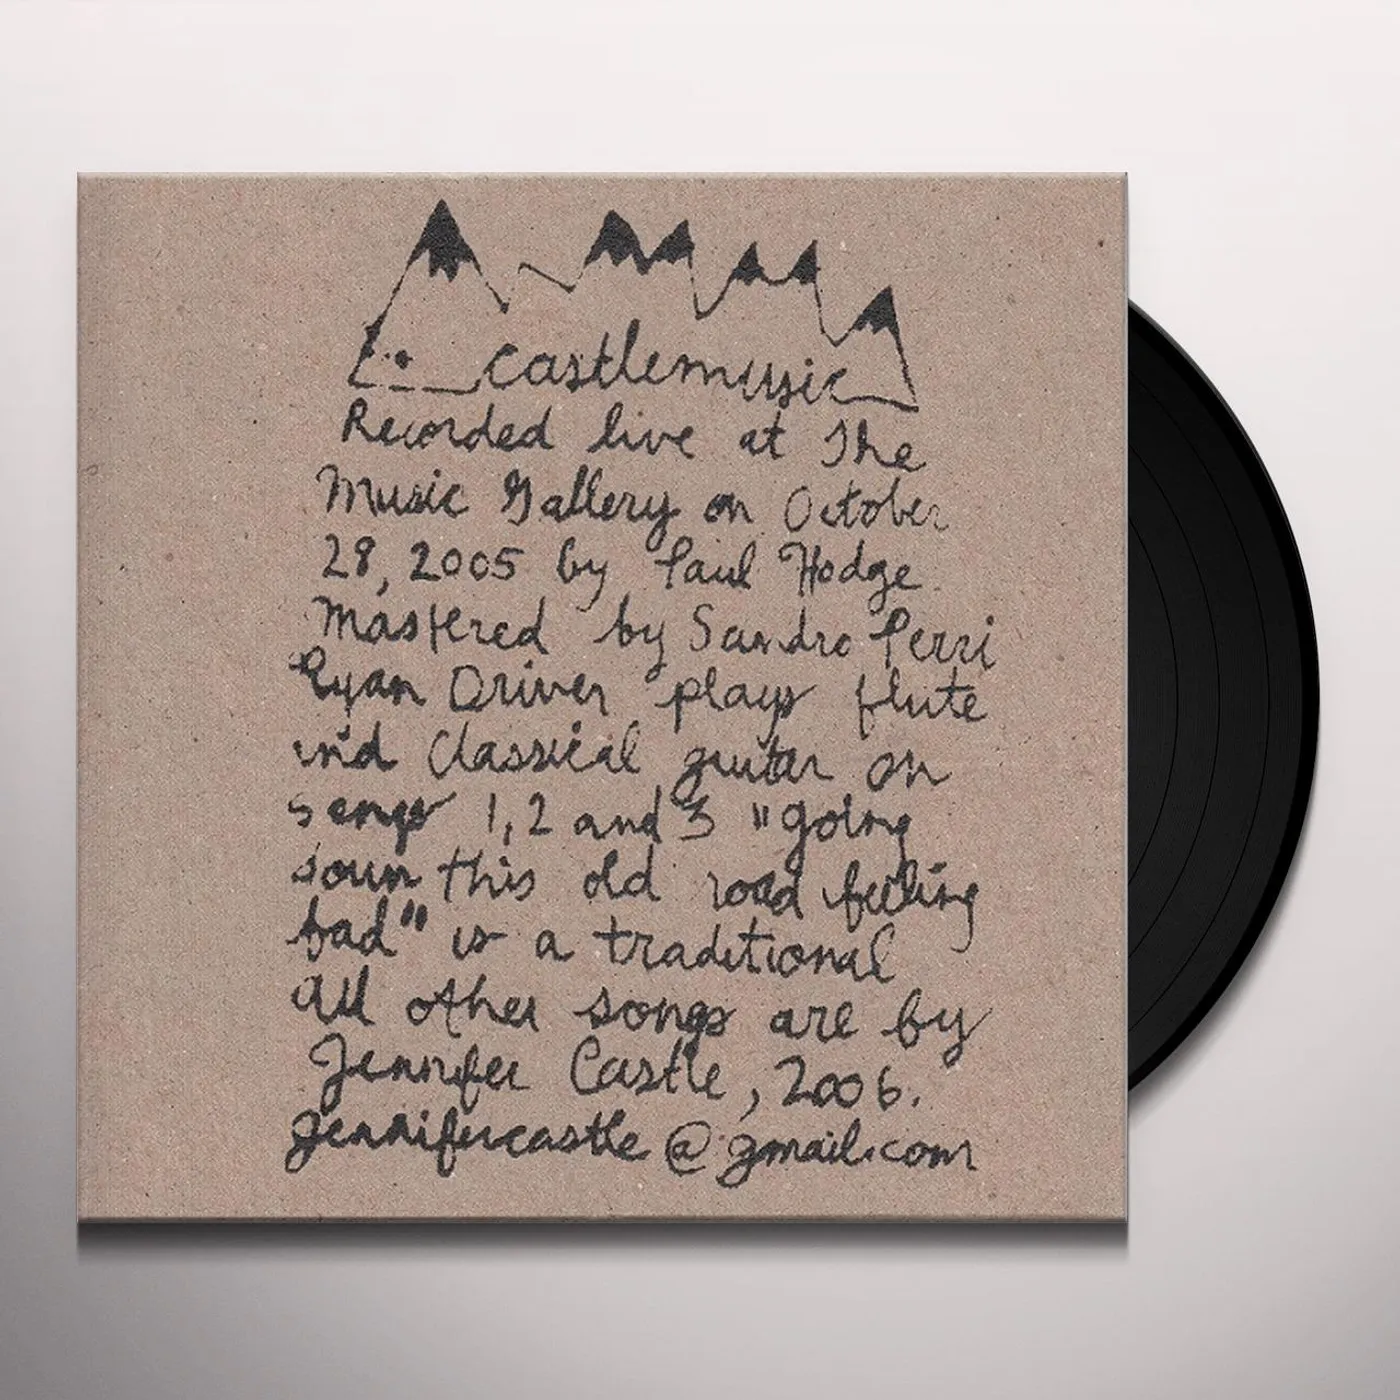 castlemusic
Recorded live at The
Music Gallery on October
28, 2005 by Paul Hodge
Mastered by Sandro Perri
Ryan Driver plays flute
and classical guitar on
songs 1, 2 and 3 "going
down this old road feeling
bad" is a traditional
all other songs are by
Jennifer Castle, 2006.
jennifercastle@gmail.com